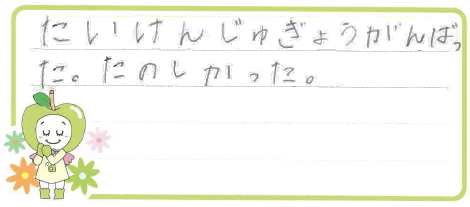 たいけんじゅぎょうがんばっ
た。たのしかった。